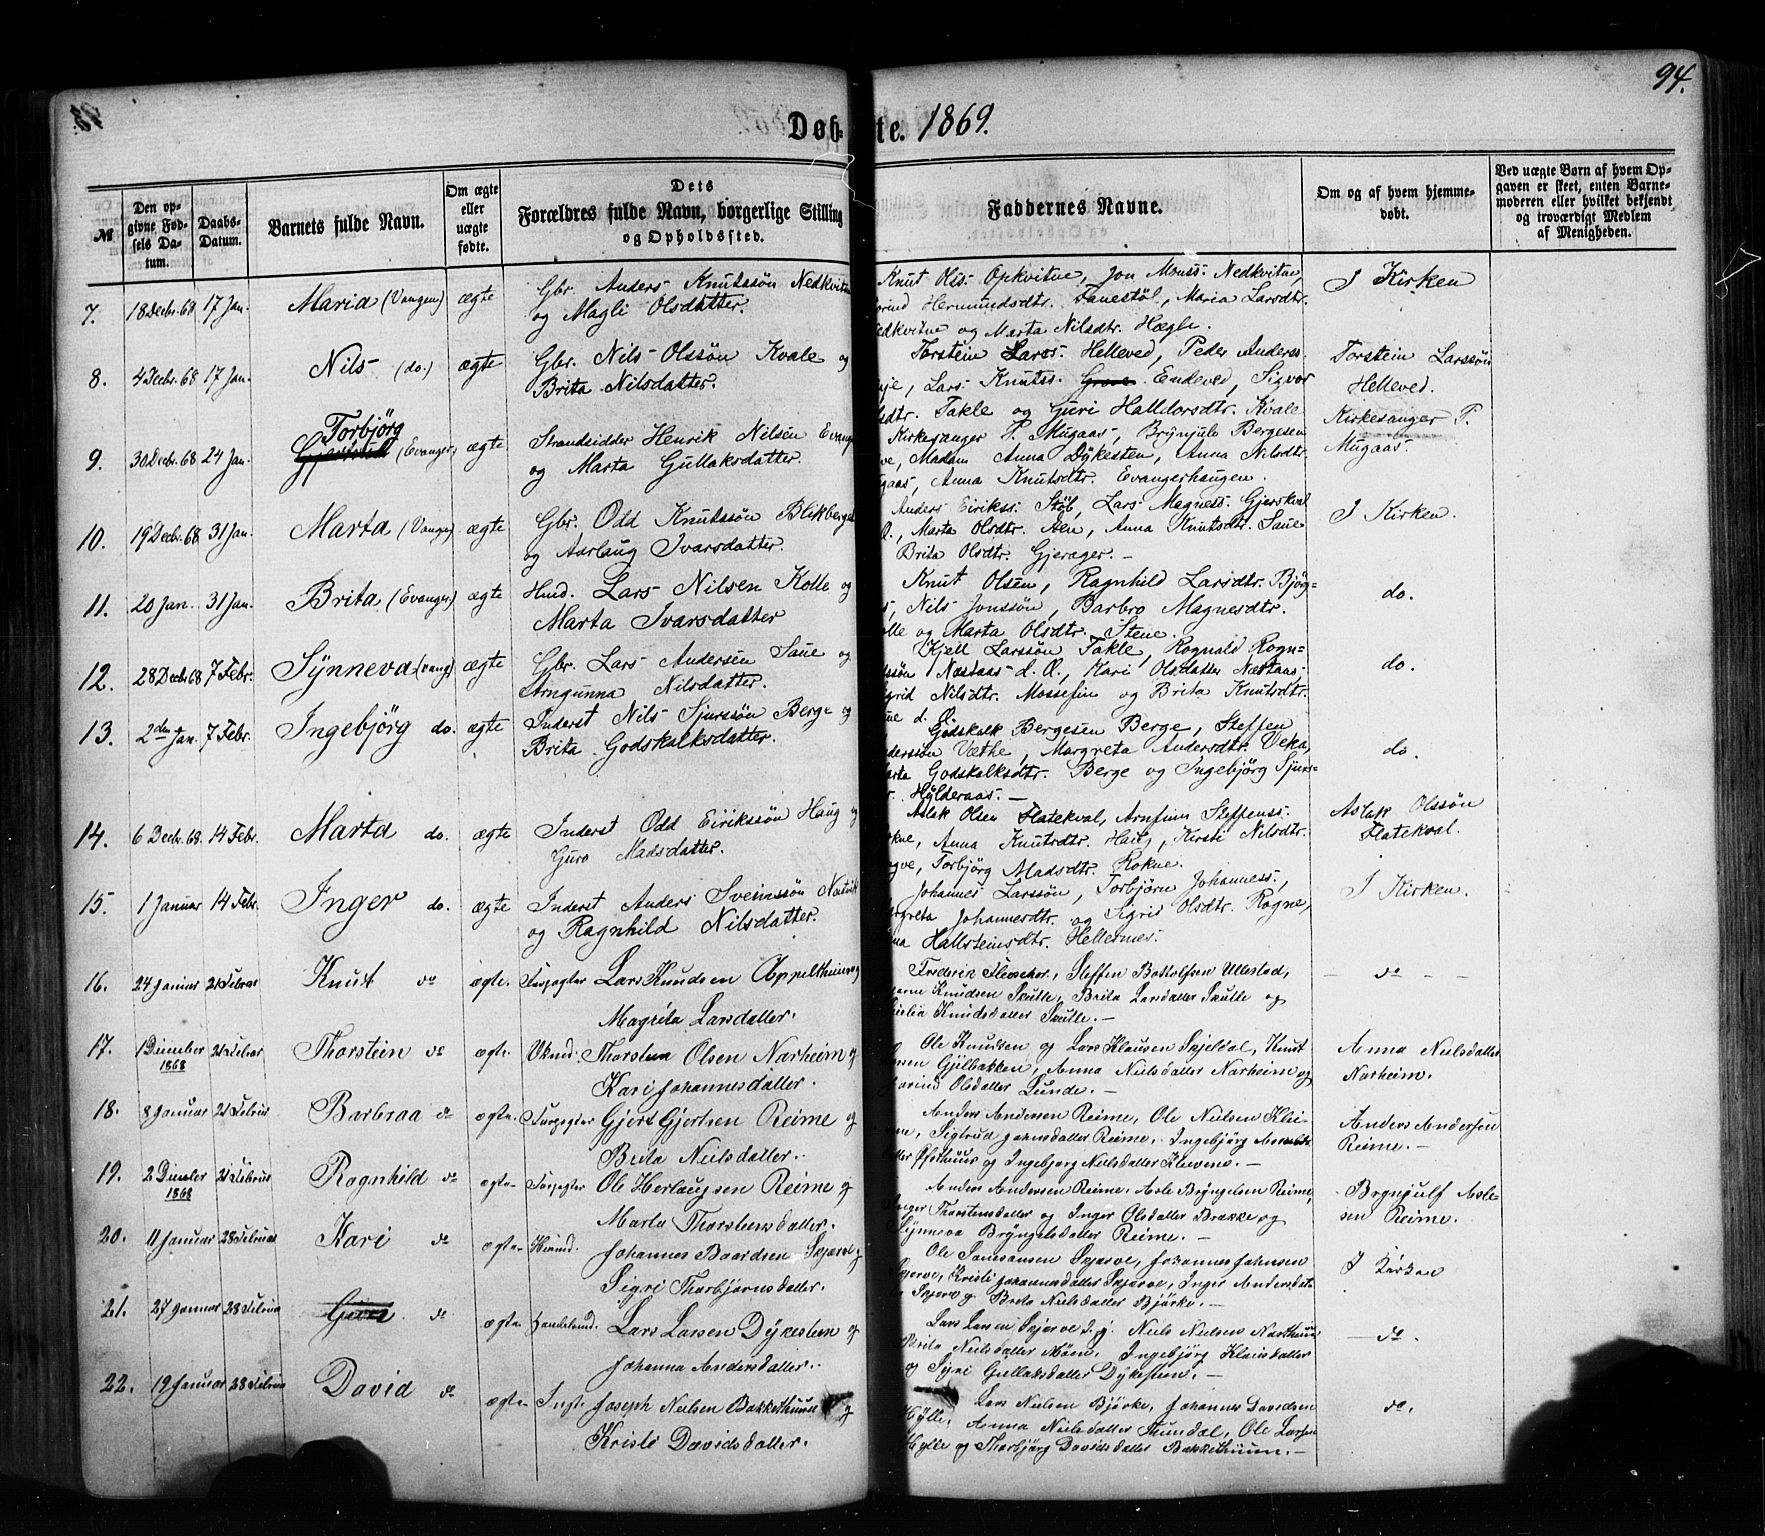 94.
Døbte. 1869.
№
Den opgivne Fødsels Datum.
Daabs-Datum.
Barnets fulde Navn.
Om ægte eller uægte fødte.
Dets Forældres fulde Navn, borgerlige Stilling og Opholdssted.
Faddernes Navne.
Om og af hvem hjemmedøbt.
Ved uægte Børn af hvem Opgaven er skeet, enten Barnemoderen eller hvilket bekjendt og troværdigt Medlem af Menigheden.
7. 18 Decbr. 68 17 Jan. Maria (Vangen) ægte Gbr. Anders Knutssön Nedkvitne
og Magli Olsdatter.
Knut Olss. Opkvitne, Jon Monss. Nedkvitne,
Hermundsdtr. Fanestöl, Maria Larsdtr.
Nedkvitne og Marta Nilsdtr. Hægle.
I Kirken
8. 4 Decbr. 68 17 Jan. Nils (do.) ægte Gbr. Nils Olssön Kvale og
Brita Nilsdatter.
Torstein Larss. Helleved, Peder Anderss.
Lars Knutss. Endeved, Sigvor
Takle og Guri Halldorsdtr. Kvale
Torstein Larssön
Helleved.
9. 30 Decbr. 68 24 Jan. Torbjörg (Evanger) ægte Strandsidder Henrik Nilsen Evang
og Marta Gullaksdatter.
Kirkesanger P. Mugaas, Brynjulv Bergesen
Madam Anna Dykesten, Anna Nilsdtr.
Mugaas, Anna Knutsdtr. Evangerhaugen.
Kirkesanger P.
Mugaas.
10. 19 Decbr. 68 31 Jan. Marta (Vangen) ægte Gbr. Odd Knutssön Blikberget
og Aarlaug Ivarsdatter.
Anders Eirikss. Stöb, Lars Magness. Gjerskval
Marta Olsdtr. Aen, Anna Knutsdtr. Saue
Brita Olsdtr. Gjerager.—
I Kirken.
11. 20 Jan. 31 Jan. Brita (Evanger) ægte Hmd. Lars Nilsen Kolle og
Marta Ivarsdatter
Knut Olsen, Ragnhild Larsdtr. Bjørg=
Nils Jonssön, Barbro Magnesdtr.
og Marta Olsdtr. Stene.
do.
12. 28 Decbr. 68 7 Febr. Synneva (Vang) ægte Gbr. Lars Andersen Saue og
Arngunna Nilsdatter.
Kjell Larssön Takle, Rognald Rogn=
Næstaas d. Æ., Kari Olsdatter Næstaas
Sigrid Nilsdtr. Mossefin og Brita Knutsdtr.
do.
13. 2den Jan. 7 Febr. Ingebjörg do. ægte Inderst Nils Sjurssön Berge og
Brita Godskalksdatter.
Godskalk Bergesen Berge, Steffen
Anderssön Væthe, Margreta Andersdtr. Veka,
Marta Godskalksdtr. Berge og Ingebjörg Sjurs=
Hylderaas.—
do.
14. 6 Decbr. 68. 14 Febr. Marta do. ægte Inderst Odd Eirikssön Haug og
Guro Madsdatter.
Aslak Olsen Flatekval, Arnfinn Steffenss.
Anna Knutsdtr. Haug, Kirsti Nilsdtr.
Torbjörg Madsdtr. Rokne.
Aslak Olssön
Flatekval.
15. 1 Januar 14 Febr. Inger do. ægte Inderst Anders Sveinssön
og Ragnhild Nilsdatter.
Johannes Larssön, Torbjörn Johanness.,
Margreta Johannesdtr. og Sigrid Olsdtr. Rogne,
Hallsteinsdtr. Hellernes.
I Kirken.
16. 24 Januar 21 Februar Knut do ægte. Forpagter Lars Knudsen Appelthun og
Magrita Larsdatter.
Frederik Fleischer, Steffen Botolfsen Ullestad,
Knudsen Skutle, Brita Larsdatter Skutle og
Knudsdatter Skutle.—
— do — -
17. 1 Decmber 1868 21 Februar Thorstein do ægte. Thorstein Olsen Narheim og
Kari Johannesdatter.
Ole Knudsen og Lars Klausen Skjeldal, Knut
Gjelbakken, Anna Nielsdatter Narheim og
Olsdatter Lunde.—
Anna Nielsdatter
Narheim.
18. 8 Januar 21 Februar Barbraa do ægte. Forpagter Gjert Gjertsen Reime og
Brita Nielsdatter.
Anders Andersen Reime, Ole Nielsen Klei-
Sigtrud Johnsdatter Reime, Ingebjörg
og Ingebjörg Nielsdatter Klevene.—
Anders Andersen
Reime.—
19. 2 Decmber 1868 21 Februar Ragnhild do ægte Forpagter Ole Herlaugsen Reime og
Marta Thorsteinsdatter.
Anders Andersen Reime, Asle Bryngelsen Reime,
Inger Thorstensdatter og Inger Olsdatter Brække og
Synneva Bryngelsdatter Reime.—
Brynjulf Asle-
sen Reime.
20. 11 Januar 28 Februar Kari do ægte Johannes Baardsen Skjerve og
Sigri Thorbjørnsdatter.
Skjerve, Johannes Johnsen
Skjerve, Kristi Johannesdatter Skjerve, Inger Andersdatt
Skjerve og Brita Nielsdatter Bjørke.—
I Kirken
21. 27 Januar 28 Februar do ægte Lars Larsen Dykesteen og
Johanna Andersdatter.
Lars Larsen Skjerve d. y. Niels Nielsen
Brita Nielsdatter Möen, Ingebjörg Klausdatter
og Syri Gullaksdatter Dykesteen.—
— do -
22. 19 Januar 28 Februar David do ægte Joseph Nielsen Bakkethuun og
Kristi Davidsdatter.
Lars Nielsen Bjørke, Johannes Davidsen
Hylle, Anna Nielsdatter Mundal, Ole Larsen
Hylle og Thorbjörg Davidsdatter Bakkethuun.—
do.